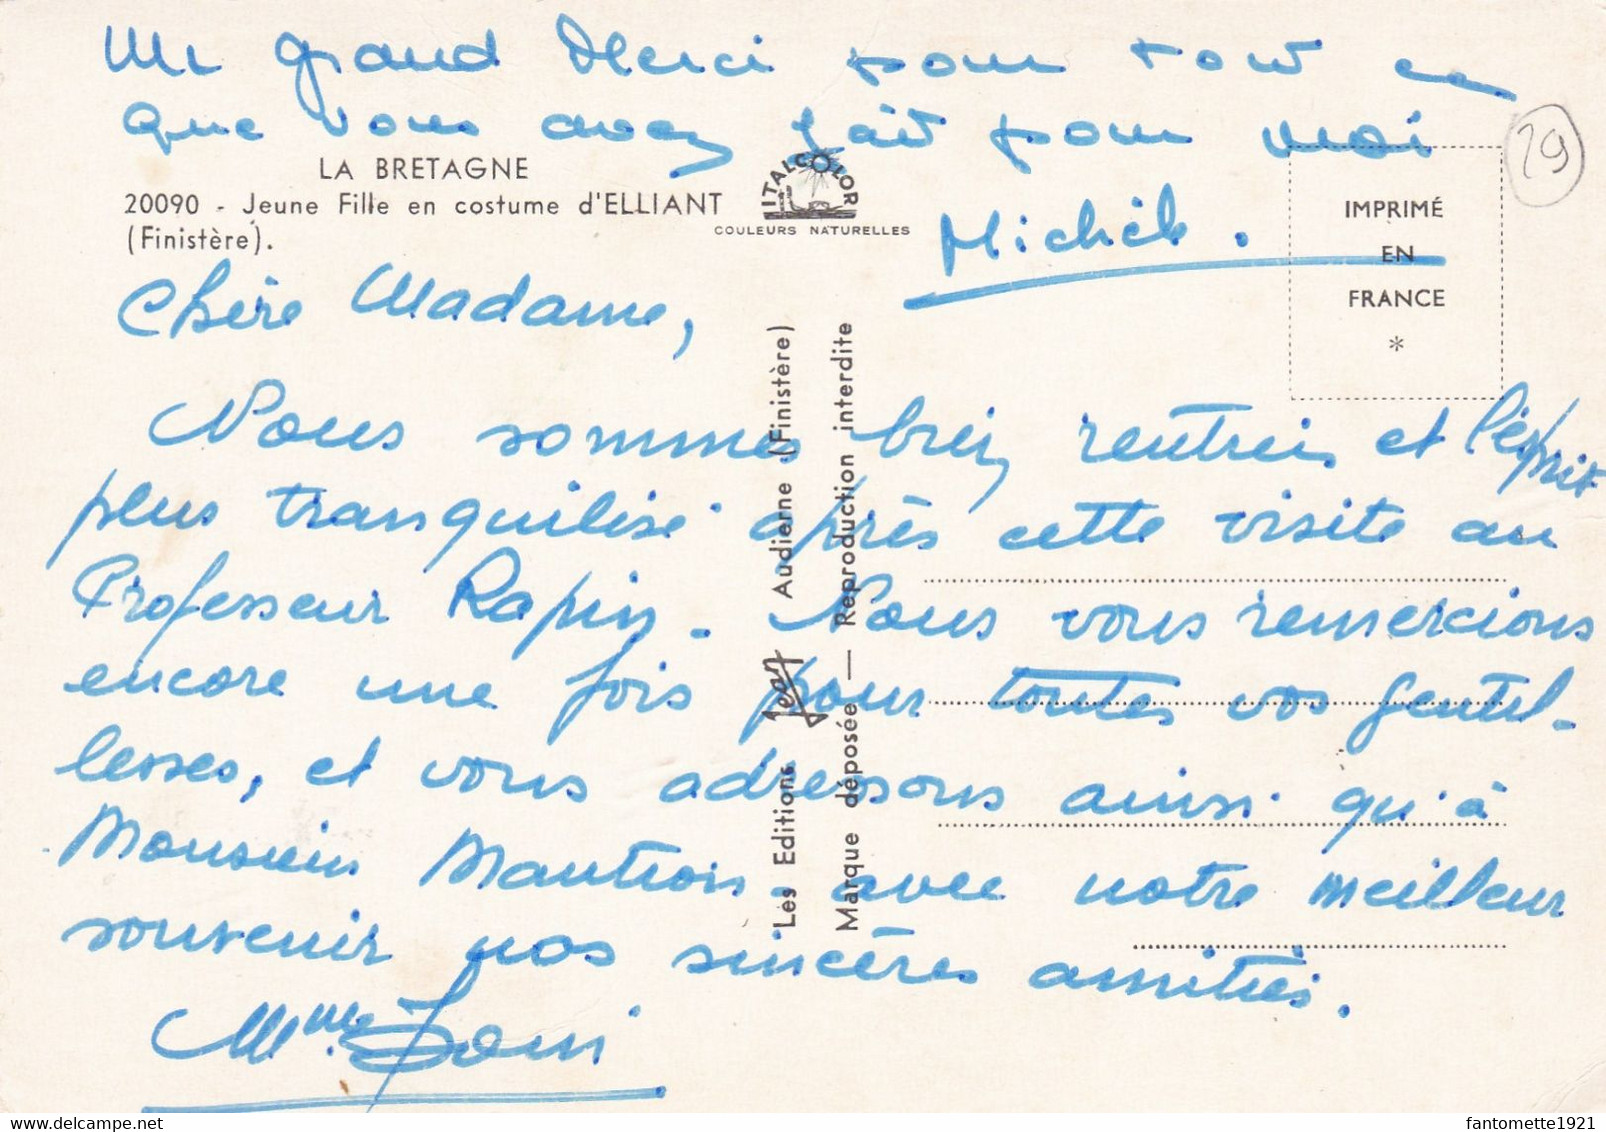 Un grand Merci pour tout ce
que vous avez fait pour moi
Michèle.
29
LA BRETAGNE
20090 - Jeune Fille en costume d'ELLIANT
(Finistère).
ITALCOLOR
COULEURS NATURELLES
IMPRIMÉ
EN
FRANCE
*
Chère Madame,
Nous sommes bien rentrés et l'esprit
plus tranquilisé après cette visite au
Professeur Rapin. Nous vous remercions
encore une fois pour toutes vos gentil-
lesses, et vous adressons ainsi qu'à
Monsieur avec notre meilleur
souvenir nos sincères amitiés.
Mme
Les Editions Jean Audierne (Finistère)
Marque déposée — Reproduction interdite
fantomette1921